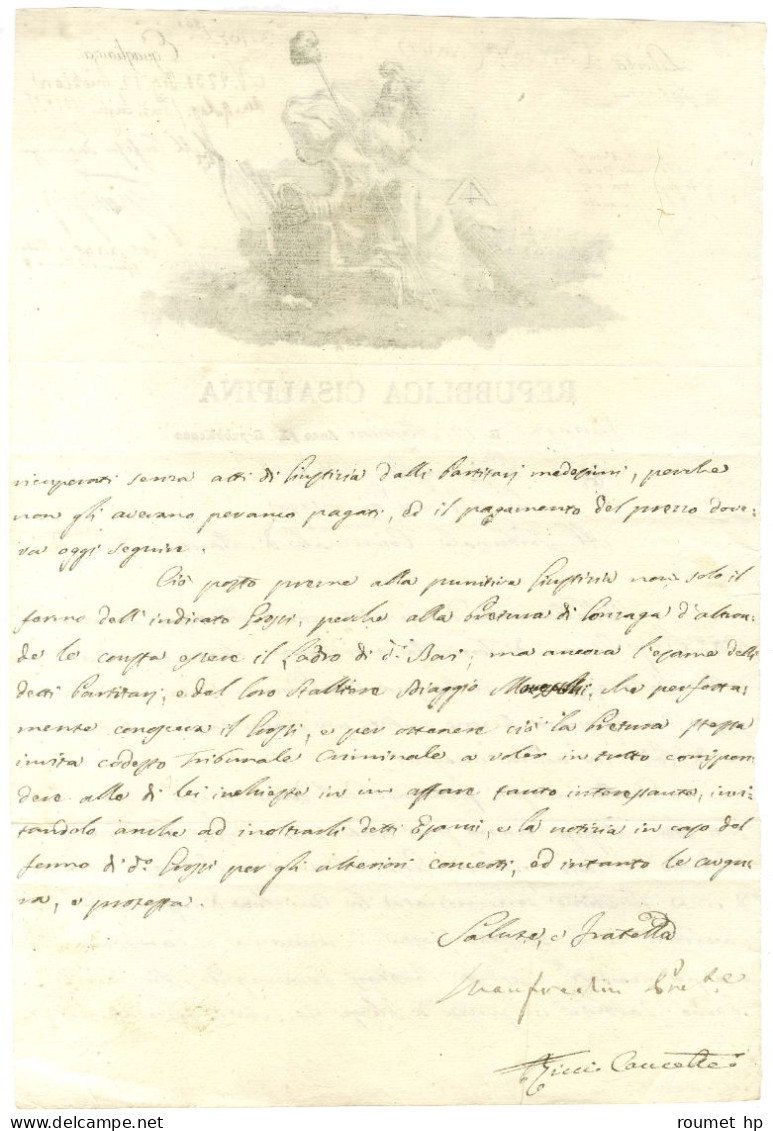 REPUBBLICA CISALPINA
ricuperati senza atti di Giustizia dalli Partitarj medesimi, perche
non gli avevano peranco pagati, ed il pagamento del prezzo dove=
va oggi seguire.
Ciò posto preme alla punitiva Giustizia non solo il
fermo dell' indicato Grossi, perche alla Pretura di Gonzaga d'altron=
de le consta essere il Ladro di d.i Bovi; ma ancora l'esame delli
detti Partitarj, e del loro Stalliere Biaggio che perfetta=
mente conosceva il Grossi, e per ottenere ciò la Pretura stessa
invita codesto Tribunale Criminale a voler in tutto corrispon=
dere alle di lei inchieste in un affare tanto interessante, invi=
tandolo anche ad inoltrarli detti Esami, e la notizia in caso del
fermo di d.o Grossi per gli ulteriori concerti, ed intanto le augu=
ra, e protesta.
Salute, e fratellà
Manfredini Pret.e
Ricci Cancelle.e
roumet hp